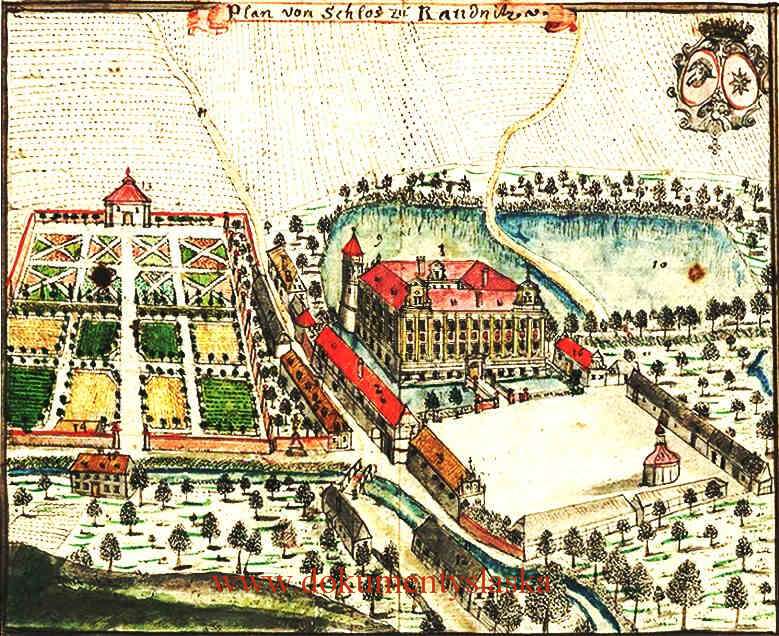 Plan von Schlos zu Raudnitz.
9
10
14
www.dokumentyslaska